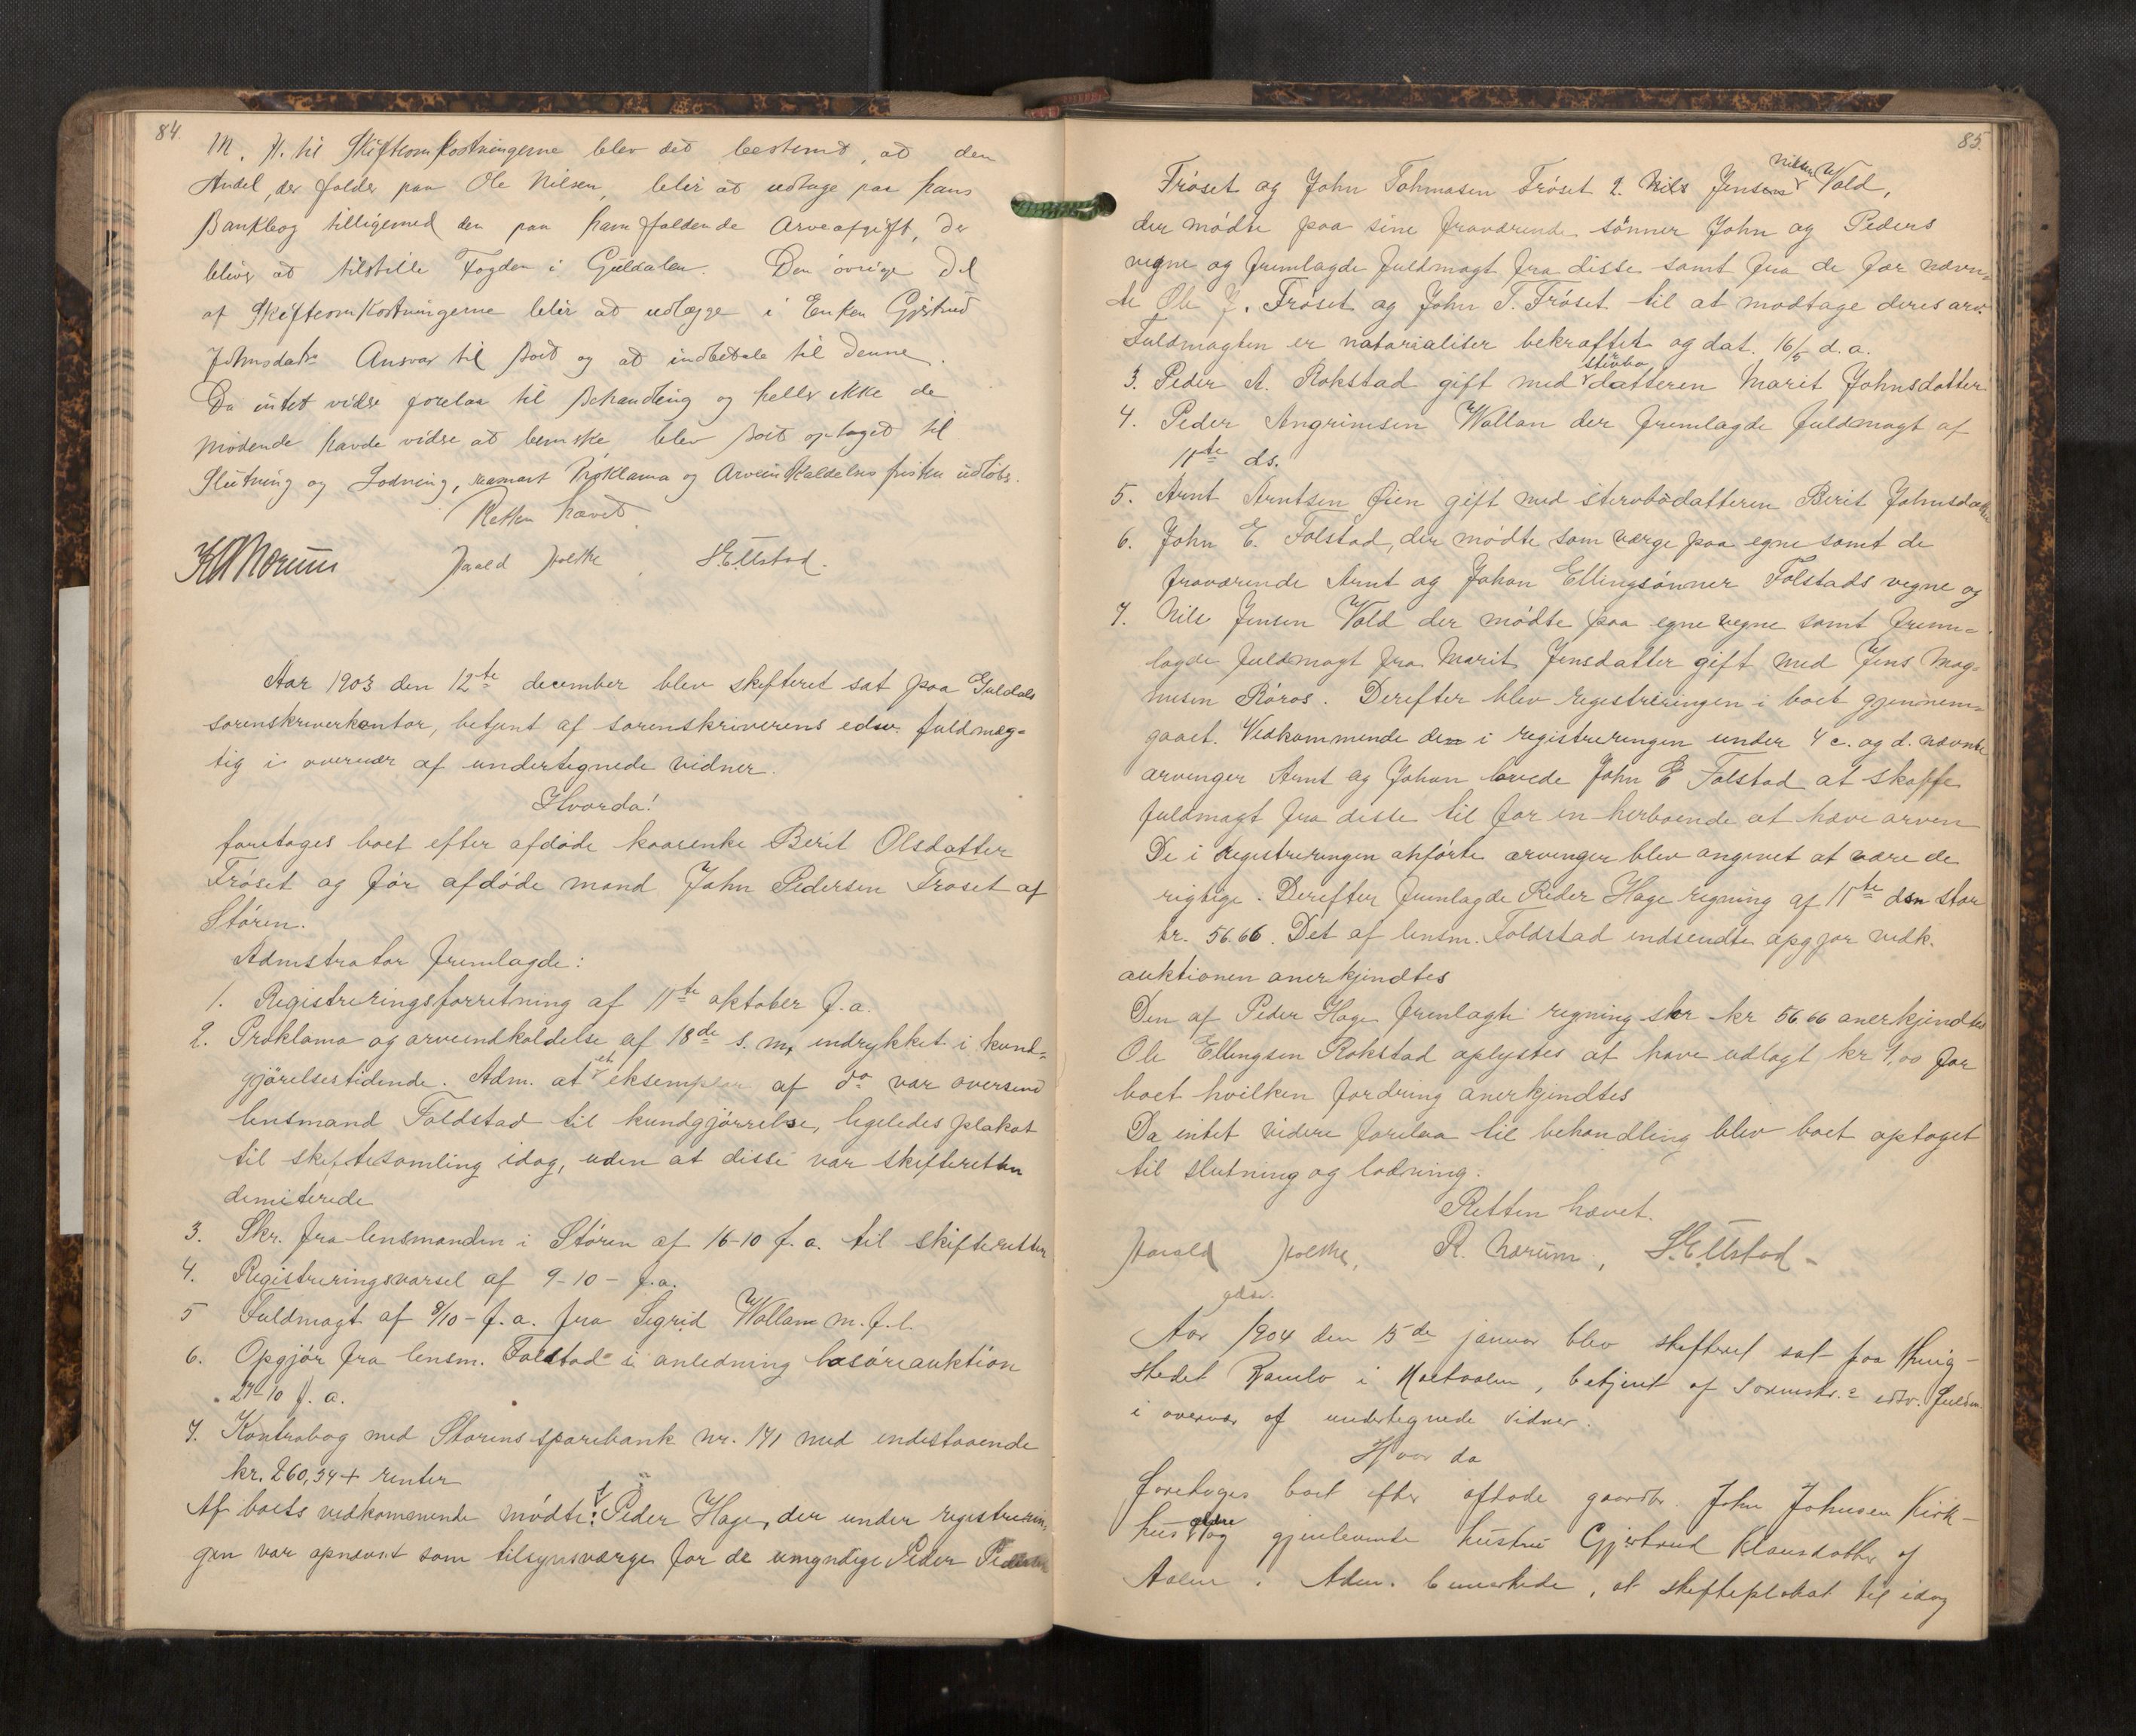 84.
M. H. til Skifteomkostningerne blev det bestemt, at den
Andel, der falder paa Ole Nilsen, blir at udtage paa hans
Bankbog tilligemed den paa ham faldende Arveafgift, der
bliver at tilstille Fogden i Guldalen. Den øvrige Del
af Skifteomkostningerne blir at udlægge i Enken Gjertrud
Johnsdatrs Ansvar til Boet og at indbetale til denne.
Da intet videre forelaa til Behandling og heller ikke de
Mødende havde videre at bemerke, blev Boet optaget til
Slutning og Lodning, naarsomst Proklama og Arveindkaldelses fristen udløber.
Retten hævet.
R Norum Harald Holthe, S. Ellstad.
Aar 1903 den 12te december blev skifteret sat paa Guldals
sorenskriverkontor, betjent af sorenskriverens edsv. fuldmæg-
tig i overvær af undertegnede vidner.
Hvorda!
foretoges boet efter afdøde kaarenke Berit Olsdatter
Frøset og før afdøde mand John Pedersen Frøset af
Støren.
Admstrator fremlagde:
1. Registreringsforretning af 11te oktober f.a.
2. Proklama og arveindkaldelse af 18de s. m. indrykket i kund-
gjørelsestidende. Adm. at et eksemplar af do var oversend
lensmand Foldstad til kundgjørrelse, ligeledes plakat
til skiftesamling idag, uden at disse var skifteretten
demiterede
3. Skr. fra lensmanden i Støren af 16-10 f.a. til skifteretten
4. Registreringsvarsel af 9-10- f.a.
5 Fuldmagt af 9/10- f.a. fra Sigrid Wollan m.fl.
6. Opgjør fra lensm. Folstad i anledning løsøreauktion
27-10 f.a.
7. Kontrabog med Størens sparebank nr. 141 med indestaaende
kr. 260,34 + renter
Af boets vedkommende mødte: 1. Peder Hage, der under registrerin-
gen var opnævnt som tilsynsværge for de umyndige Peder Pedersen
85.
Frøset og John Tohmasen Frøset 2. Nils Jensen Nilsen Wold,
der mødte paa sine fraværende sønner John og Peders
vegne og fremlagde fuldmagt fra disse samt fra de før nævn-
te Ole J. Frøset og John T. Frøset til at modtage deres arv.
Fuldmagten er notarialiter bekræftet og dat. 16/5 d.a.
3. Peder A. Rokstad gift med stervbo datteren Marit Johnsdatter
4. Peder Angrimsen Wollan der fremlagde fuldmagt af
11te ds.
5. Arnt Arntsen Øien gift med stervbodatteren Berit Johnsdatter
6. John E. Folstad, der mødte som værge paa egne samt de
fraværende Arnt og Johan Ellingsønner Folstads vegne og
7. Nils Jensen Wold der mødte paa egne vegne samt frem-
lagde fuldmagt fra Marit Jensdatter gift med Jens Mag-
nusen Røros. Derefter blev registreringen i boet gjennem-
gaaet. Vedkommende den i registreringen under 4 c. og d. nævnte
arvinger Arnt og Johan lovede John E Folstad at skaffe
fuldmagt fra disse til for en herboende at hæve arven
De i registreringen anførte arvinger blev angivet at være de
rigtige. Derefter fremlagde Peder Hage regning af 11te dsn stor
kr. 56.66. Det af lensm. Foldstad indsendte opgjør vedk.
auktionen anerkjendtes
Den af Peder Hage fremlagte regning stor kr 56 66 anerkjendtes
Ole Ellingsen Rokstad oplystes at have udlagt kr 4,00 for
boet hvilken fordring anerkjendtes
Da intet videre forelaa til behandling blev boet optaget
til slutning og lodning.
Retten hævet.
Harald Holthe, R. Norum, S. Ellstad.
edsv.
Aar 1904 den 15de januar blev skifteret sat paa thing-
stedet Ramlo i Holtaalen, betjent af Sorenskr.s edsv. fuldm.
i overvær af undertegnede vidner.
Hvor da
foretoges boet efter afdøde gaardbr. John Johnsen Kirk-
hus ældre og gjenlevende hustru Gjertrud Klausdatter af
Aalen. Adm. bemærkede, at skifteplakat til idag